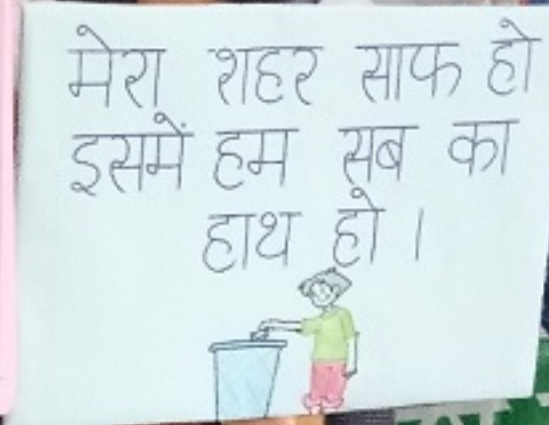 मेरा शहर साफ हो
इसमें हम सब का
हाथ हो ।